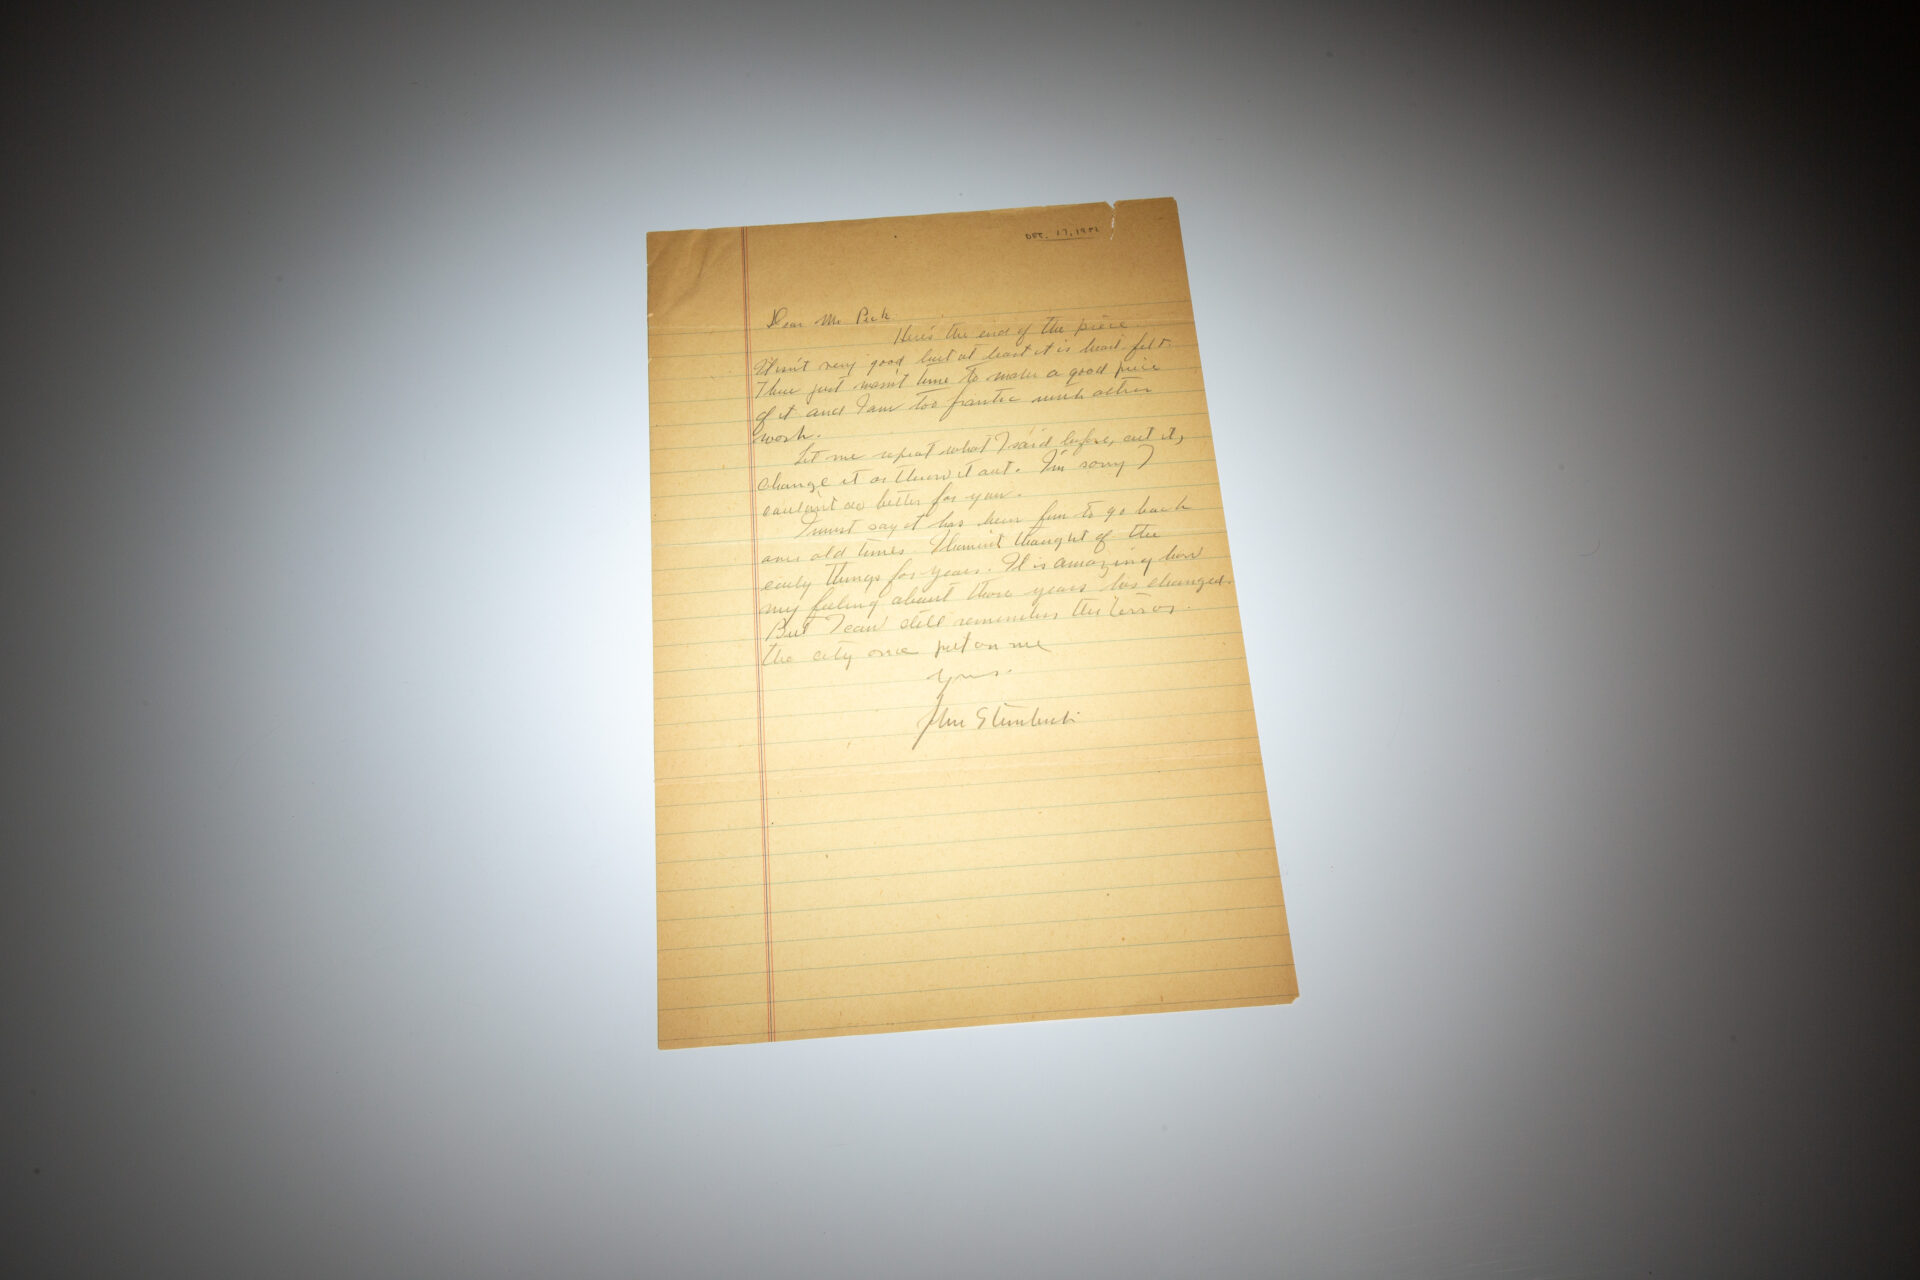 DEC. 17, 19
Dear Mr Peck
Here's the end of the piece.
It isn't very good but at least it is heart felt.
There just wasn't time to make a good piece
of it and I am too frantic with other
work.
Let me repeat what I said before, cut it,
change it or throw it out. I'm sorry I
couldn't do better for you.
I must say it has been fun to go back
over old times. I haven't thought of the
early things for years. It is amazing how
my feeling about those years has changed.
But I can still remember the terror
the city once put on me
Yours
John Steinbeck